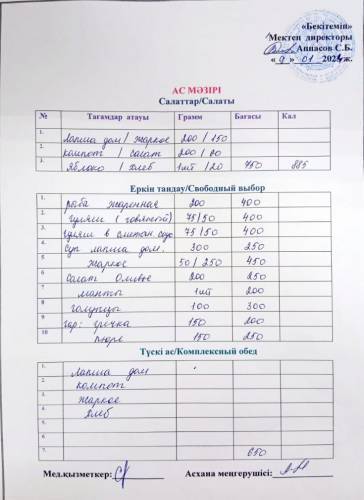 «Бекітемін»
Мектеп директоры
Аппасов С.Б.
« 9 » 01 2024ж.
АС МӘЗІРІ
Салаттар/Салаты
№ Тағамдар атауы Грамм Бағасы Кал
1. лапша дом/ жаркое 200 / 150
2. компот / салат 200 / 80
3. яблоко / хлеб 1шт /20 750 885
Еркін таңдау/Свободный выбор
1. рыба жаренная 200 400
2. гуляш ( говяжий) 75/50 400
3. гуляш в сметан. соус 75/50 400
4. суп лапша дом. 300 250
5 жаркое 50/250 450
6 салат Оливье 200 250
7 манты 1шт 200
8 голубцы 100 300
9 гар: гречка 150 200
10 пюре 150 250
Түскі ас/Комплексный обед
1. лапша дом
2. компот
3. жаркое
4. хлеб
5.
6.
7. 650
Мед.қызметкер: Асхана меңгерушісі: